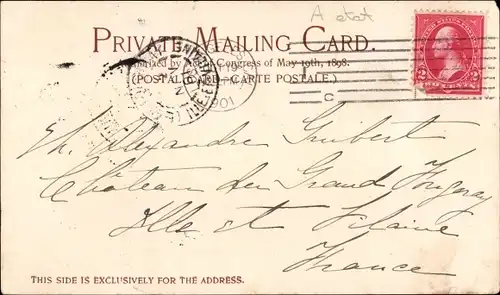 A etat
Private Mailing Card.
Authorized by Act of Congress of May 19th, 1898.
(POSTAL CARD—CARTE POSTALE.)
1901
C
2 2
TWO CENTS
Alexandre
Château du Grand Fougeray
Ille et Vilaine
France
THIS SIDE IS EXCLUSIVELY FOR THE ADDRESS.